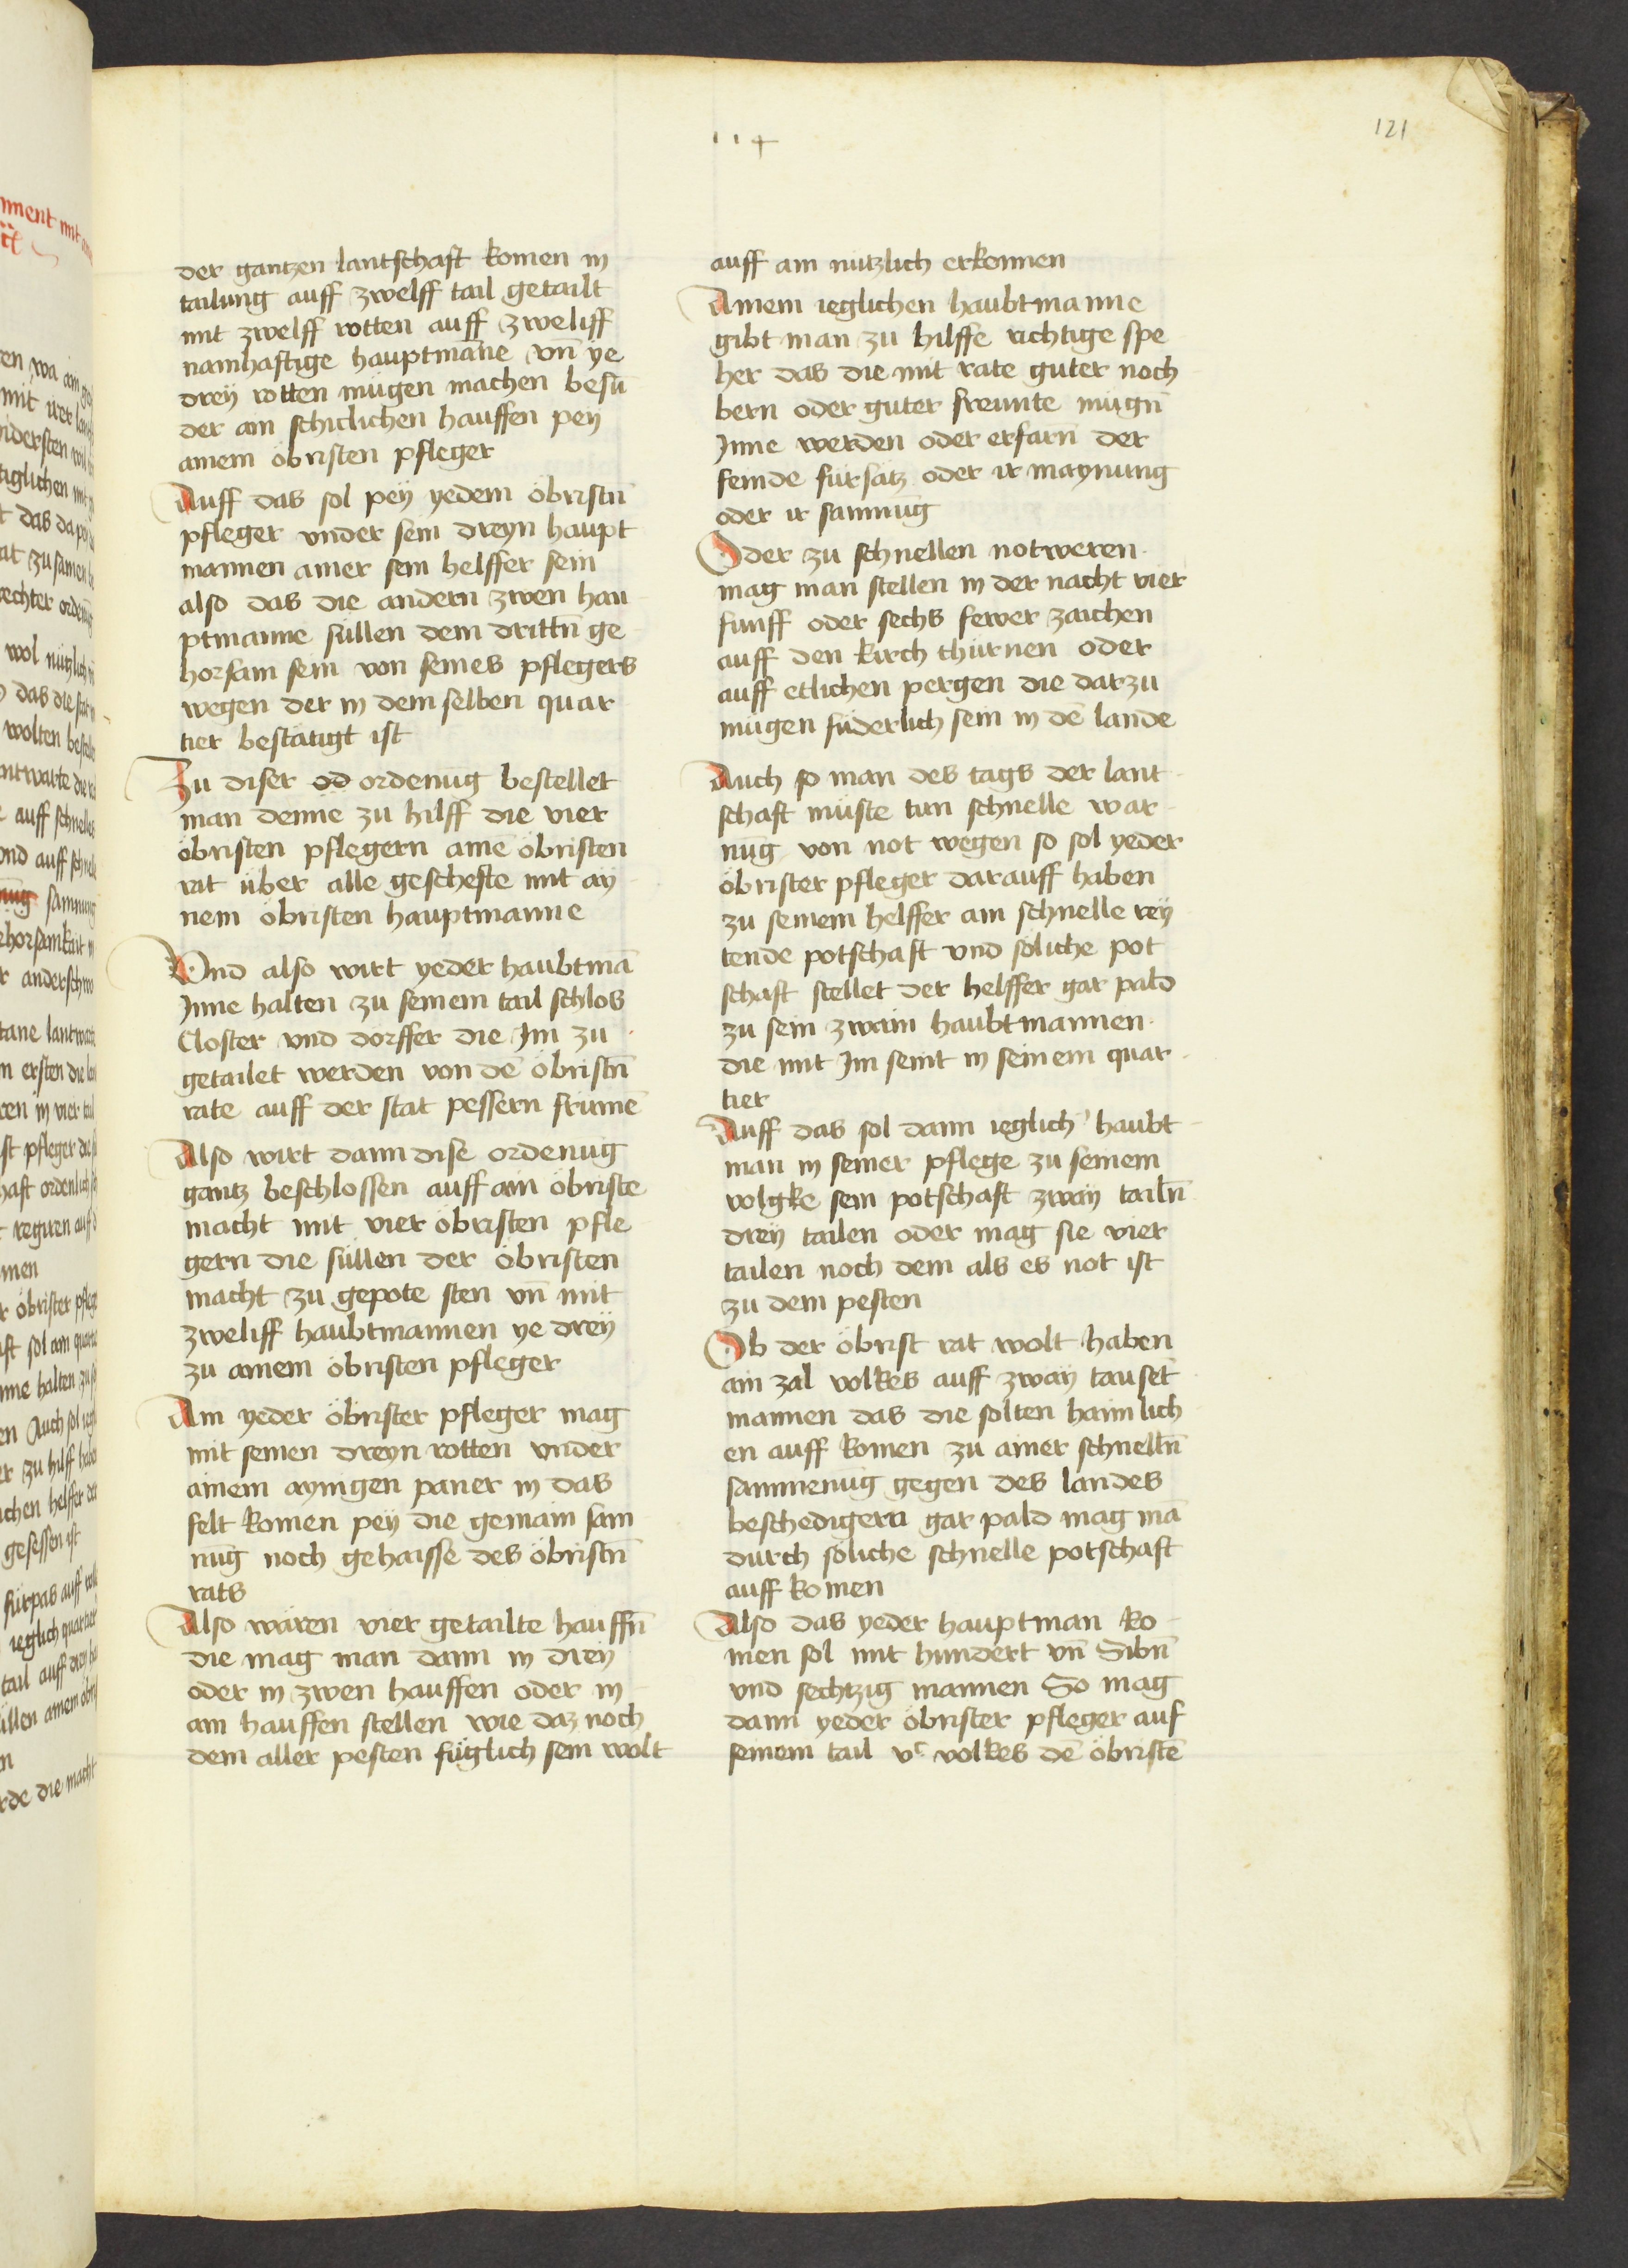 114
121
der gantzen lantschaft komen in
tailung auff zwelff tail getailt
mit zwelff rotten auff zweliff
namhaftige hauptmāne vn̄ ye
dreÿ rotten mügen machen besū
der ain schiclichen hauffen peÿ
ainem öbristen pfleger
Auff das sol peÿ yedem öbristn̄
pfleger vnder sein dreyn haupt
mannen ainer sein helffer sein
also das die andern zwen hau
ptmanne süllen dem drittn̄ ge
horsam sein von seines pflegers
wegen der in dem selben quar
tier bestätigt ist
Zu diser od ordenūg bestellet
man denne zu hilff die vier
öbristen pflegern aine öbristen
rat über alle geschefte mit aÿ
nem öbristen hauptmanne
Vnd also wirt yeder haubtmā
Inne halten zu seinem tail schlos
Closter vnd dorffer die Im zu
getailet werden von dē öbristn̄
rate auff der stat pessern frumē
Also wirt dann dise ordenūg
gantz beschlossen auff ain öbriste
macht mit vier öbristen pfle
gern die süllen der öbristen
macht zu gepote sten vn̄ mit
zweliff haubtmannen ye dreÿ
zu ainem öbristen pfleger
Ain yeder öbrister pfleger mag
mit seinen dreyn rotten vnder
ainem aynigen paner in das
felt komen peÿ die gemain sam
nūg noch gehaisse des öbristn̄
rats
Also wären vier getailte hauffn̄
die mag man dann in dreÿ
oder in zwen hauffen oder in
ain hauffen stellen wie daz noch
dem aller pesten füglich sein wolt
auff ain nützlich erkennen
Ainem ieglichen haubtmanne
gibt man zu hilffe richtige spe
her das die mit rate guter noch
bern oder guter freunte mügn̄
Inne werden oder erfarn̄ der
feinde fürsätz oder ir maynung
oder ir samnūg
Oder zu schnellen notweren
mag man stellen in der nacht vier
funff oder sechs fewer zaichen
auff den kirch thürnen oder
auff etlichen pergen die darzu
mügen füderlich sein in dē lande
Auch so man des tags der lant
schaft müste tun schnelle war
nūg von not wegen so sol yeder
öbrister pfleger darauff haben
zu seinem helffer ain schnelle reÿ
tende potschaft vnd söliche pot
schaft stellet der helffer gar pald
zu sein zwain haubtmannen
die mit Im seint in seinem quar
tier
Auff das sol dann ieglich haubt
man in seiner pflege zu seinem
volgke sein potschaft zwaÿ tailn̄
dreÿ tailen oder mag sie vier
tailen noch dem als es not ist
zu dem pesten
Ob der öbrist rat wolt haben
ain zal volkes auff zwaÿ tauset
mannen das die solten haimlich
en auff komen zu ainer schnelln̄
sammenūg gegen des landes
beschedigern gar pald mag mā
durch söliche schnelle potschaft
auff komen
Also das yeder hauptman ko
men sol mit hundert vn̄ Sibn̄
vnd sechtzig mannen So mag
dann yeder öbrister pfleger auf
seinem tail vᶜ volkes dē öbristē